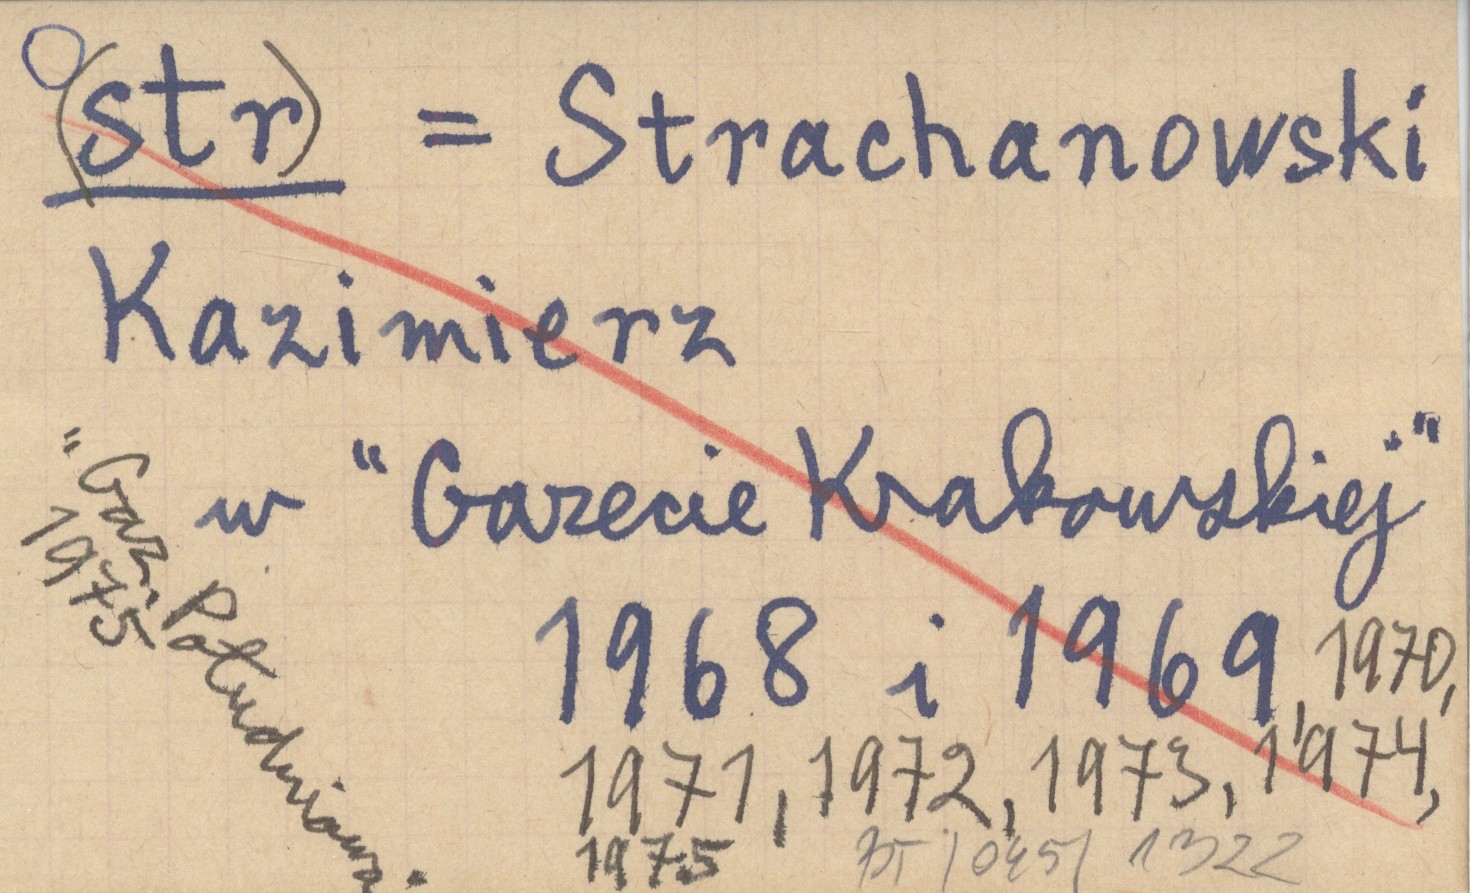 (str) = Strachanowski
Kazimierz
w "Gazecie Krakowskiej"
1968 i 1969, 1970,
1971, 1972, 1973, 1974,
1975
"Gaz. Południowa.
1975
1322